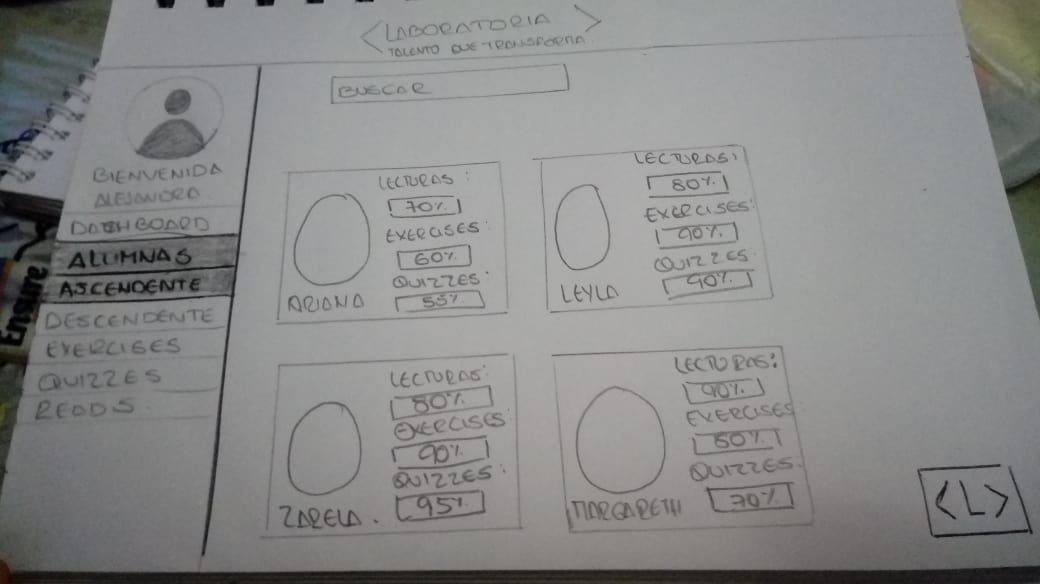 <LABORATORIA>
TALENTO QUE TRANSFORMA.
BUSCAR
BIENVENIDA
ALEJANDRA
DASHBOARD
ALUMNAS
ASCENDENTE
DESCENDENTE
EXERCISES
QUIZZES
READS.
LECTURAS:
70%
EXERCISES:
60%
QUIZZES:
55%
ARIANA
LECTURAS:
80%
EXERCISES:
90%
QUIZZES:
90%
LEYLA
LECTURAS:
80%
EXERCISES:
90%
QUIZZES:
95%
ZARELA.
LECTURAS:
90%
EXERCISES:
QUIZZES:
70%
MARGARETH
<L>
Ensure